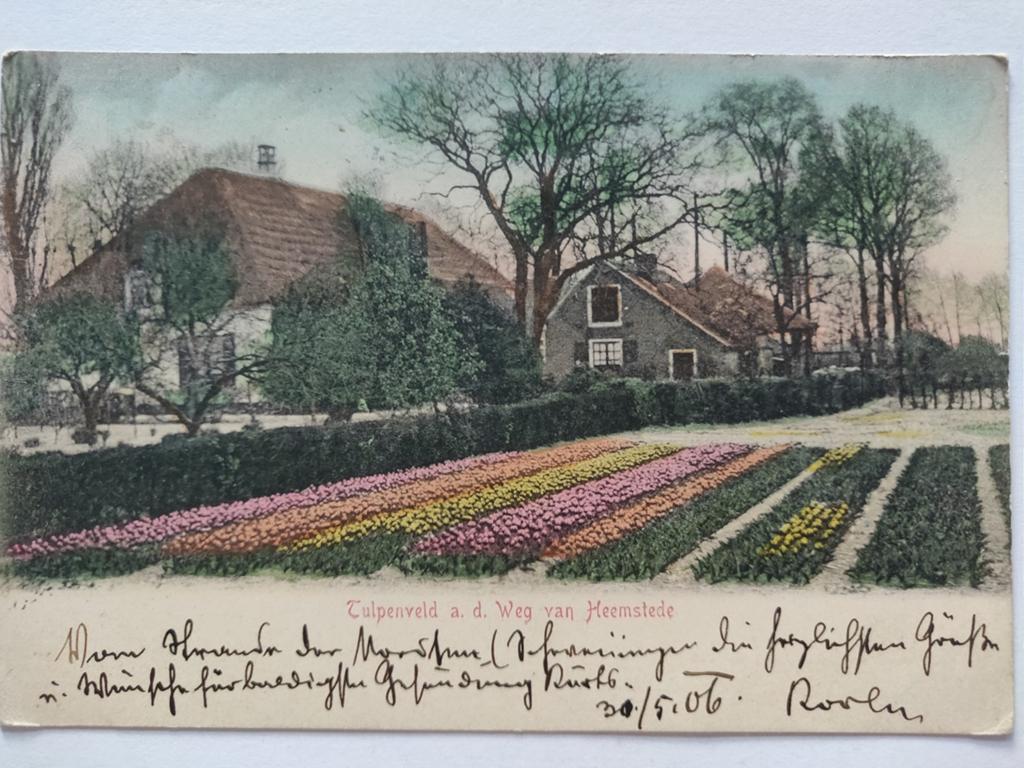 Tulpenveld a. d. Weg van Heemstede
Vom Strande der Nordsee (Scheveningen die herzlichsten Grüße
u. Wünsche für baldigste Gesundung Kurts.
30/5.06.